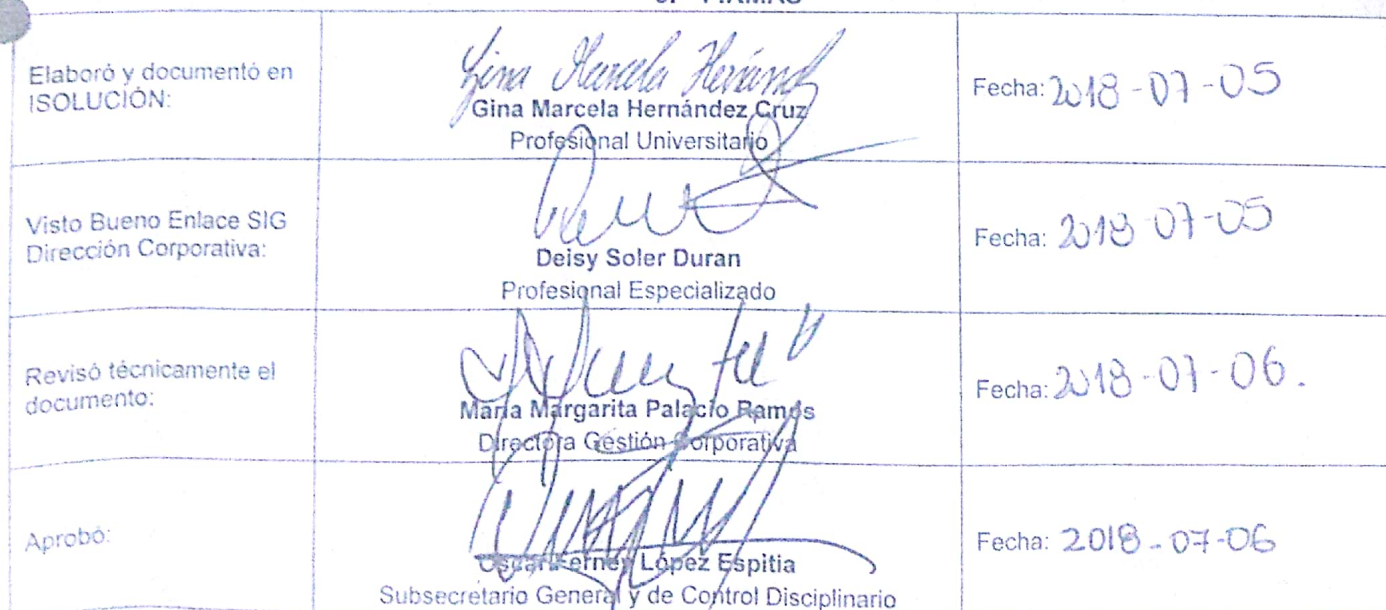 Elaboró y documentó en
ISOLUCIÓN:
Gina Marcela Hernández
Gina Marcela Hernández Cruz
Profesional Universitario
Fecha: 2018-07-05
Visto Bueno Enlace SIG
Dirección Corporativa:
Deisy Soler Duran
Profesional Especializado
Fecha: 2018 07-05
Revisó técnicamente el
documento:
María Margarita Palacio Ramos
Directora Gestión Corporativa
Fecha: 2018-07-06.
Aprobó:
Oscar Ferney López Espitia
Subsecretario General y de Control Disciplinario
Fecha: 2018-07-06